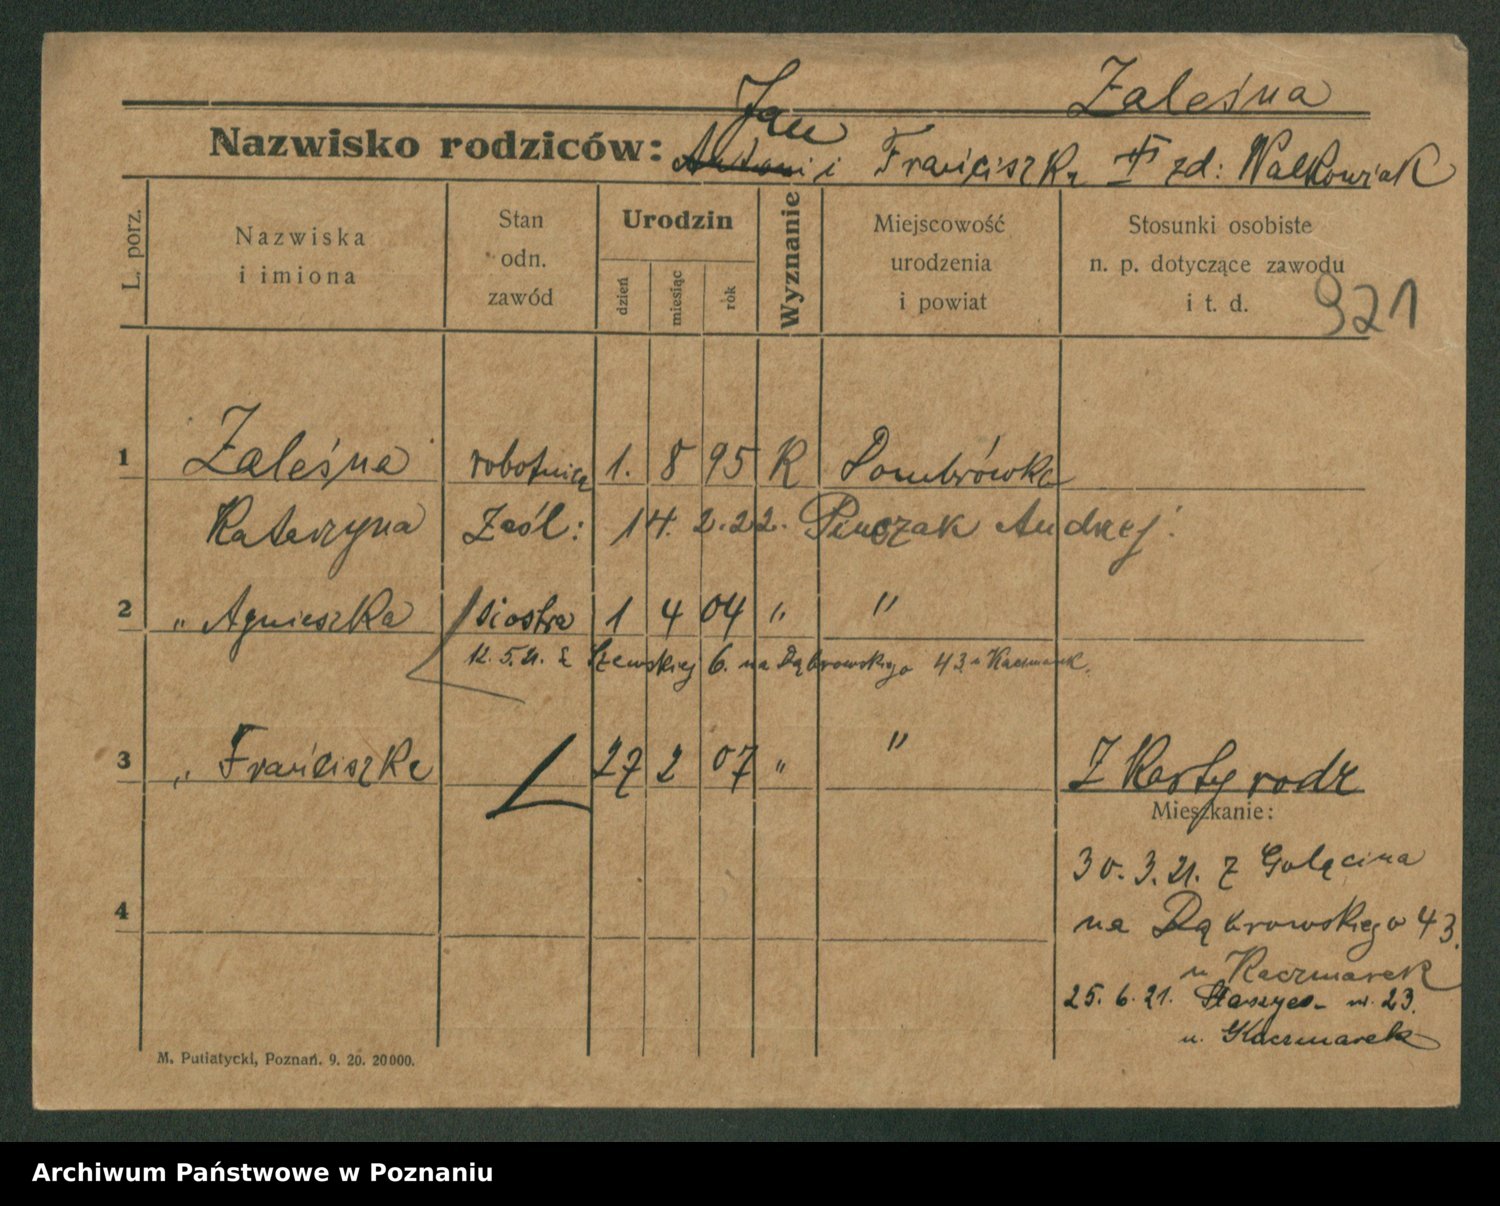 Zaleśna
Jan
Nazwisko rodziców: Antoni i Franciszka II zd: Walkowiak
L. porz.
Nazwiska i imiona
Stan odn. zawód
Urodzin
dzień
miesiąc
rok
Wyznanie
Miejscowość urodzenia i powiat
Stosunki osobiste n. p. dotyczące zawodu i t. d.
921
1 Zaleśna robotnica 1. 8 95 K Dombrówka
Katarzyna Zaśl: 14. 2. 22. Andrzej
2 " Agnieszka siostra 1 4 04 " "
12. 5. 21. z Szewskiej 6. na Dąbrowskiego 43 u Kaczmarek.
3 " Franciszka 27 2 07 " "
Z Karty rodz
Mieszkanie:
30. 3. 21. z Golęcina
4
na Dąbrowskiego 43.
u Kaczmarek
25. 6. 21. Staszyca nr. 23.
u. Kaczmarek
M. Putiatycki, Poznań. 9. 20. 20000.
Archiwum Państwowe w Poznaniu